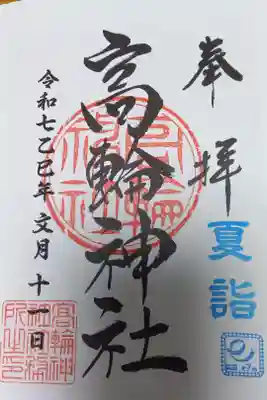 奉拝
夏詣
高輪神社
令和七乙巳年 文月 十一日
高輪神社
高輪神
社社務
所之印